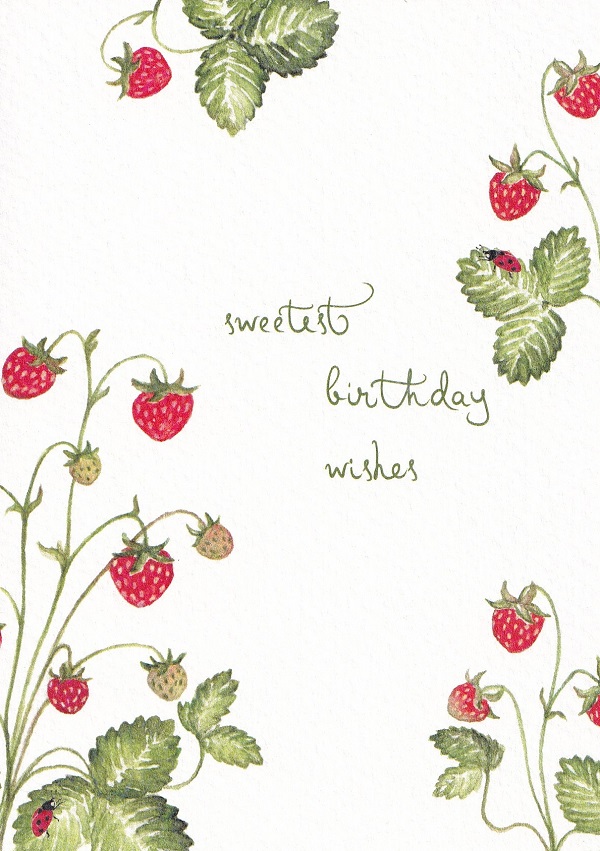 sweetest
birthday
wishes